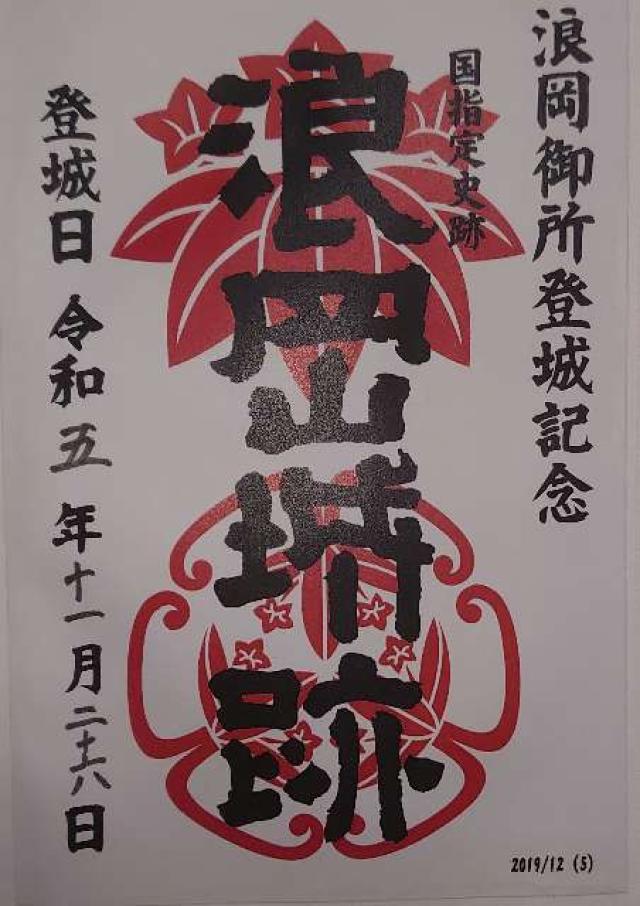 浪岡御所登城記念
国指定史跡
浪岡城跡
登城日 令和五年十一月二十六日
2019/12 (5)